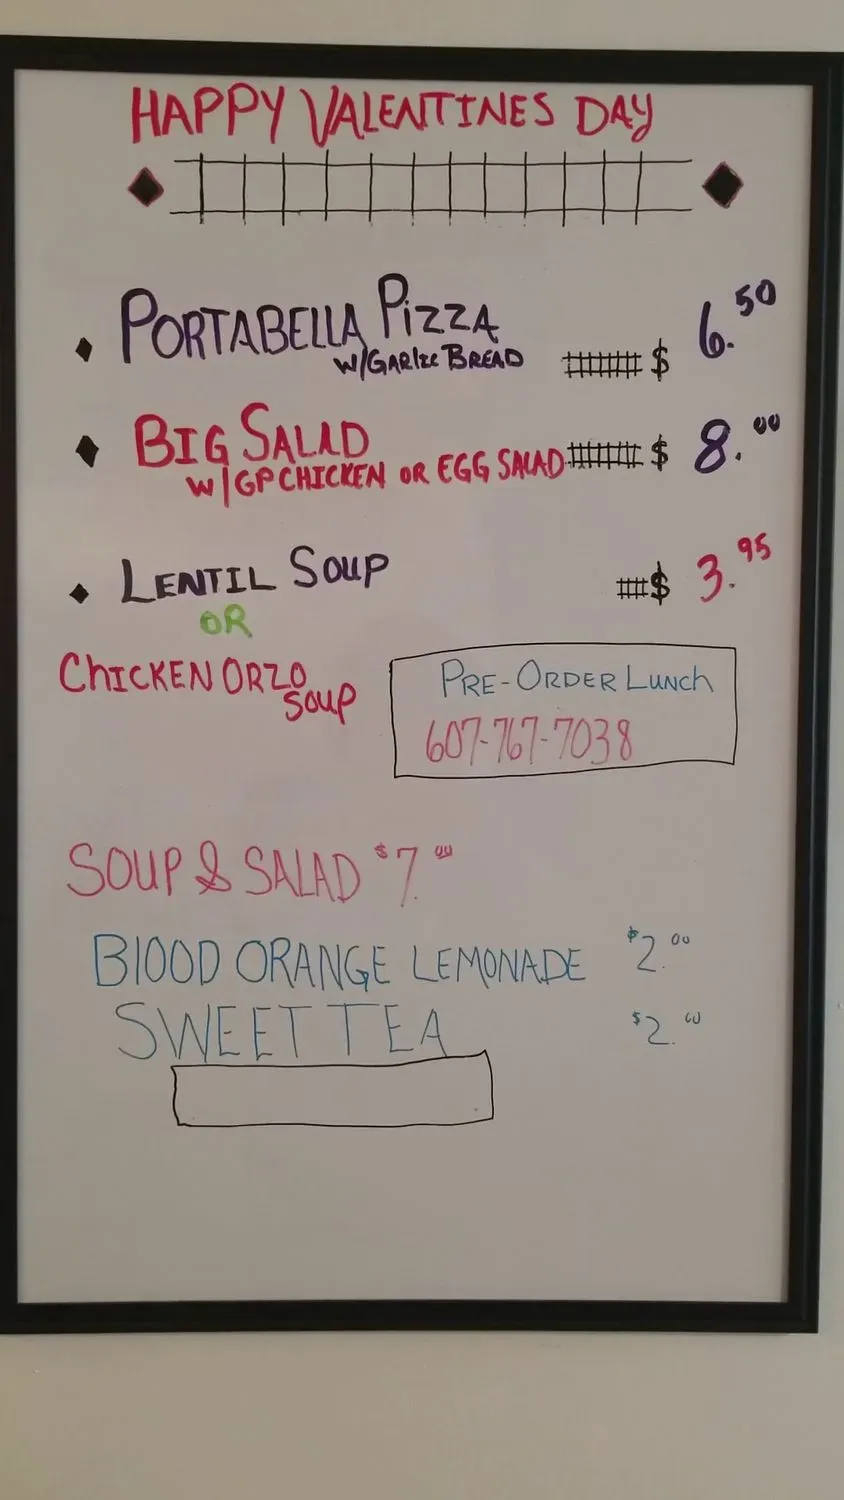 HAPPY VALENTINES DAY
PORTABELLA PIZZA
W/GARLIC BREAD $ 6.50
BIG SALAD
W/GP CHICKEN OR EGG SALAD $ 8.00
LENTIL SOUP $ 3.95
OR
CHICKEN ORZO
SOUP
PRE-ORDER LUNCH
607-767-7038
SOUP & SALAD $7.00
BLOOD ORANGE LEMONADE $2.00
SWEET TEA $2.00